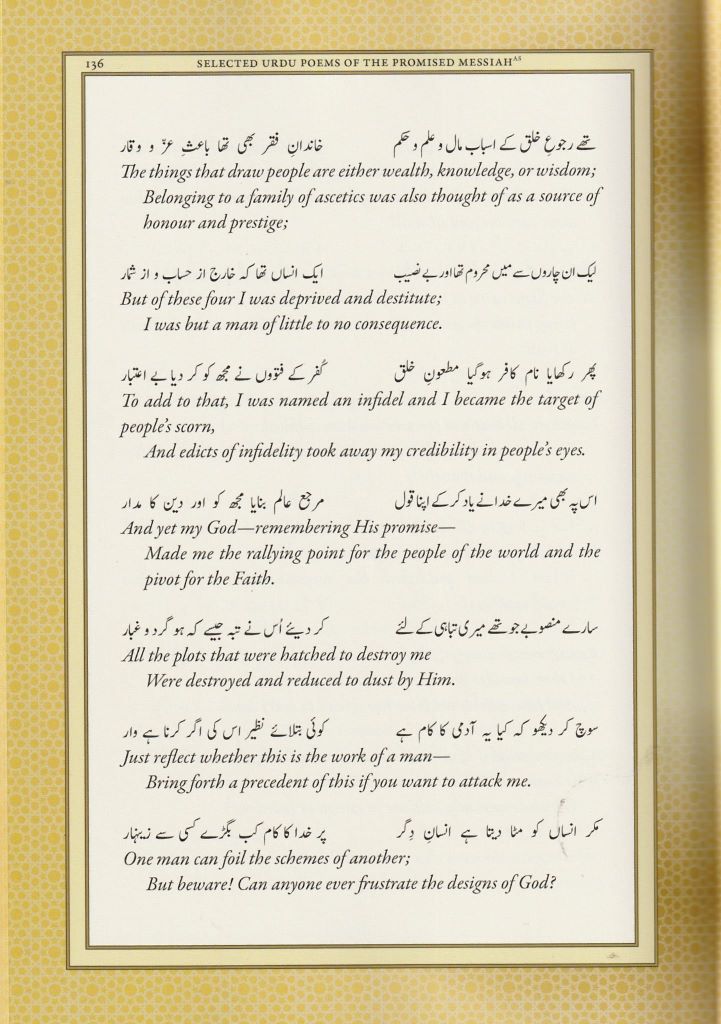 136 SELECTED URDU POEMS OF THE PROMISED MESSIAHAS
تھے رجوعِ خلق کے اسباب مال و علم و حکم خاندانِ فقر بھی تھا باعثِ عزّ و وقار
The things that draw people are either wealth, knowledge, or wisdom;
Belonging to a family of ascetics was also thought of as a source of
honour and prestige;
لیک ان چاروں سے میں محروم تھا اور بے نصیب ایک انساں تھا کہ خارج از حساب و از شمار
But of these four I was deprived and destitute;
I was but a man of little to no consequence.
پھر رکھایا نام کافر ہوگیا مطعونِ خلق کُفر کے فتووں نے مجھ کو کر دیا بے اعتبار
To add to that, I was named an infidel and I became the target of
people's scorn,
And edicts of infidelity took away my credibility in people's eyes.
اس پہ بھی میرے خدا نے یاد کر کے اپنا قول مرجع عالم بنایا مجھ کو اور دین کا مدار
And yet my God—remembering His promise—
Made me the rallying point for the people of the world and the
pivot for the Faith.
سارے منصوبے جو تھے میری تباہی کے لئے کر دیئے اُس نے تبہ جیسے کہ ہو گرد و غبار
All the plots that were hatched to destroy me
Were destroyed and reduced to dust by Him.
سوچ کر دیکھو کہ کیا یہ آدمی کا کام ہے کوئی بتلائے نظیر اس کی اگر کرنا ہے وار
Just reflect whether this is the work of a man—
Bring forth a precedent of this if you want to attack me.
مکر انساں کو مٹا دیتا ہے انسانِ دِگر پر خدا کا کام کب بگڑے کسی سے زینہار
One man can foil the schemes of another;
But beware! Can anyone ever frustrate the designs of God?